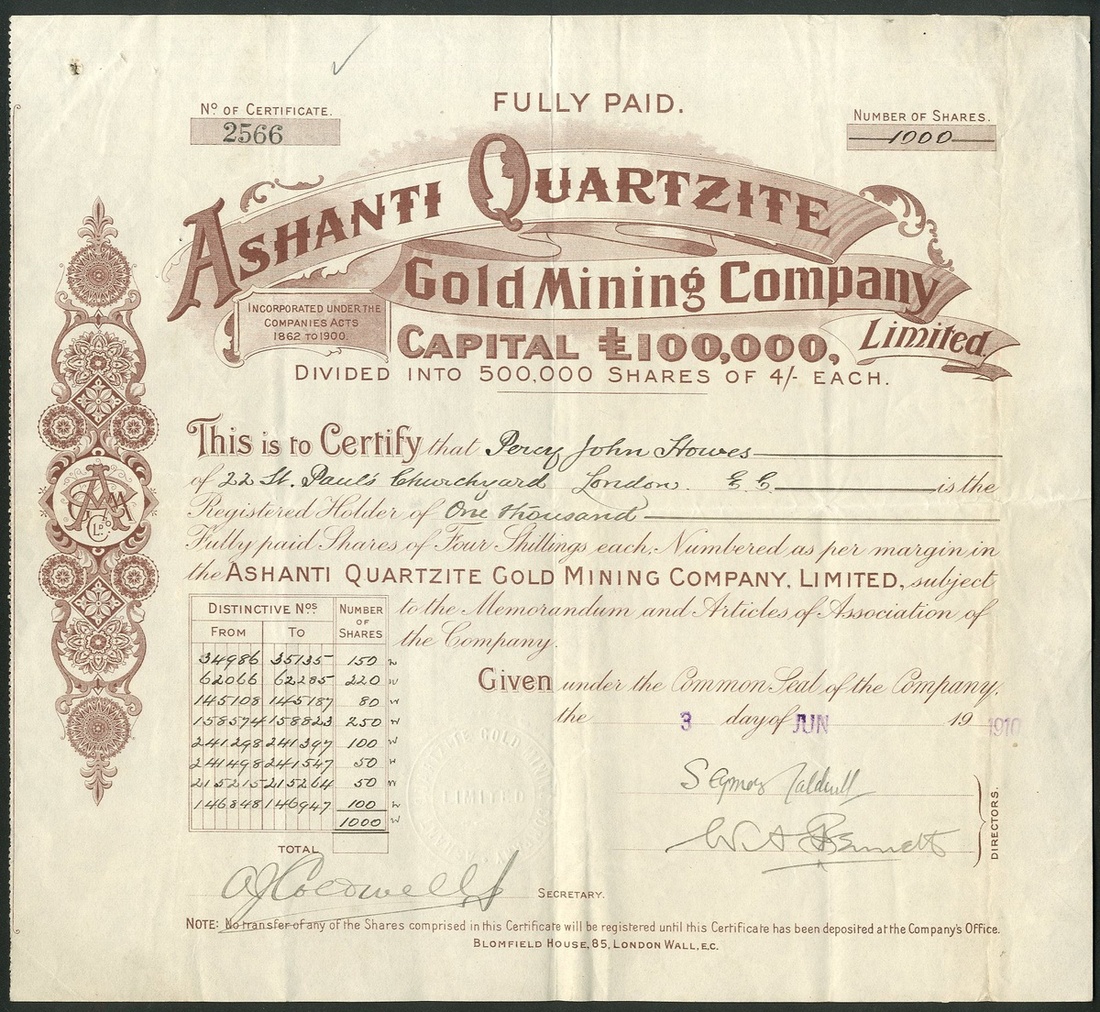 FULLY PAID.
No OF CERTIFICATE.
2566
NUMBER OF SHARES.
1000
ASHANTI QUARTZITE
Gold Mining Company
Limited.
INCORPORATED UNDER THE
COMPANIES ACTS
1862 TO 1900.
CAPITAL £100,000,
DIVIDED INTO 500,000 SHARES OF 4/- EACH.
This is to Certify that Percy John Howes
of 22 St. Paul's Churchyard London. E.C. is the
Registered Holder of One thousand
Fully paid Shares of Four Shillings each, Numbered as per margin in
the ASHANTI QUARTZITE GOLD MINING COMPANY, LIMITED, subject
to the Memorandum and Articles of Association of
the Company.
DISTINCTIVE Nos. NUMBER OF SHARES
FROM TO
34986 35135 150
62066 62285 220
145108 145187 80
158574 158823 250
241298 241397 100
241498 241547 50
215215 215264 50
146848 146947 100
1000
TOTAL
Given under the Common Seal of the Company,
the 3 day of JUN 19 1910
LIMITED
W A Bennett
DIRECTORS.
SECRETARY.
NOTE: No transfer of any of the Shares comprised in this Certificate will be registered until this Certificate has been deposited at the Company's Office.
BLOMFIELD HOUSE, 85, LONDON WALL, E.C.